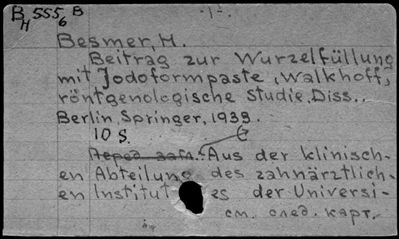 Bн 5556 B
-1-
Besmer, H.
Beitrag zur Wurzelfüllung
mit Jodoformpaste, Walkhoff,
röntgenologische Studie, Diss..
Berlin, Springer, 1933.
10 S.
Перед загл.: Aus der klinisch-
en Abteilung des zahnärztlich-
en Institutes der Universi-
см. след. карт.